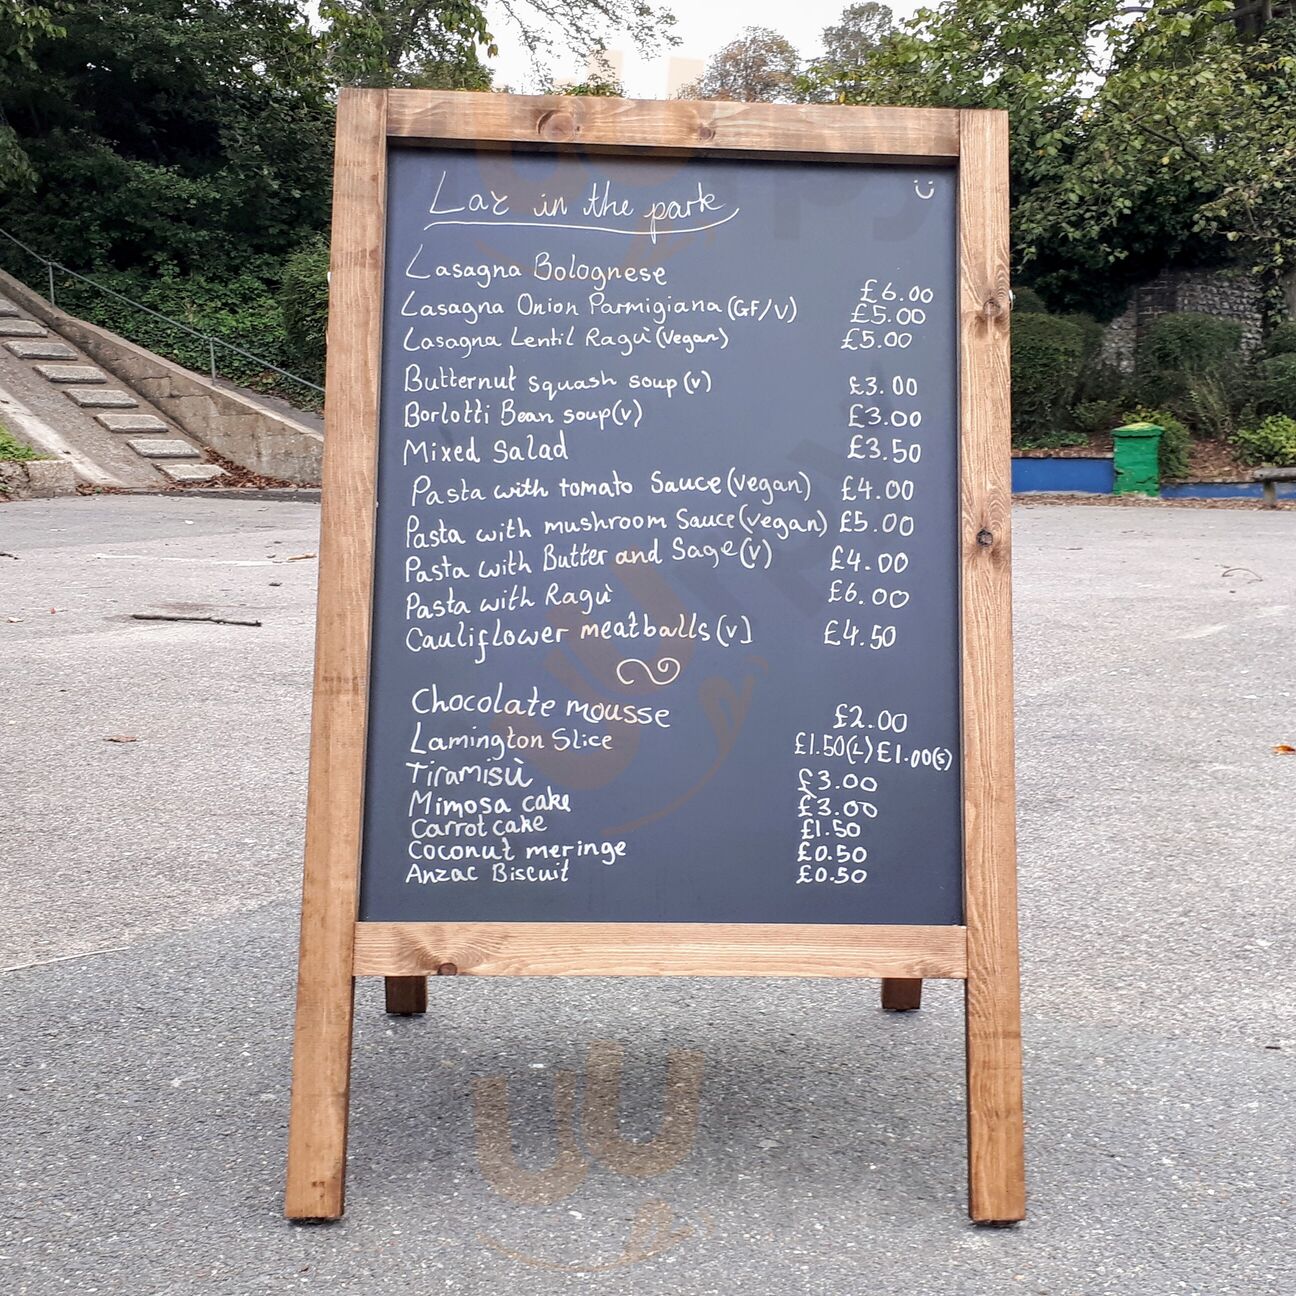 Laz in the park
Lasagna Bolognese £6.00
Lasagna Onion Parmigiana (GF/V) £5.00
Lasagna Lentil Ragù (Vegan) £5.00
Butternut squash soup (v) £3.00
Borlotti Bean soup (v) £3.00
Mixed Salad £3.50
Pasta with tomato Sauce (vegan) £4.00
Pasta with mushroom Sauce (vegan) £5.00
Pasta with Butter and Sage (v) £4.00
Pasta with Ragù £6.00
Cauliflower meatballs (v) £4.50
Chocolate mousse £2.00
Lamington Slice £1.50(L) £1.00(s)
Tiramisù £3.00
Mimosa cake £3.00
Carrot cake £1.50
Coconut meringe £0.50
Anzac Biscuit £0.50